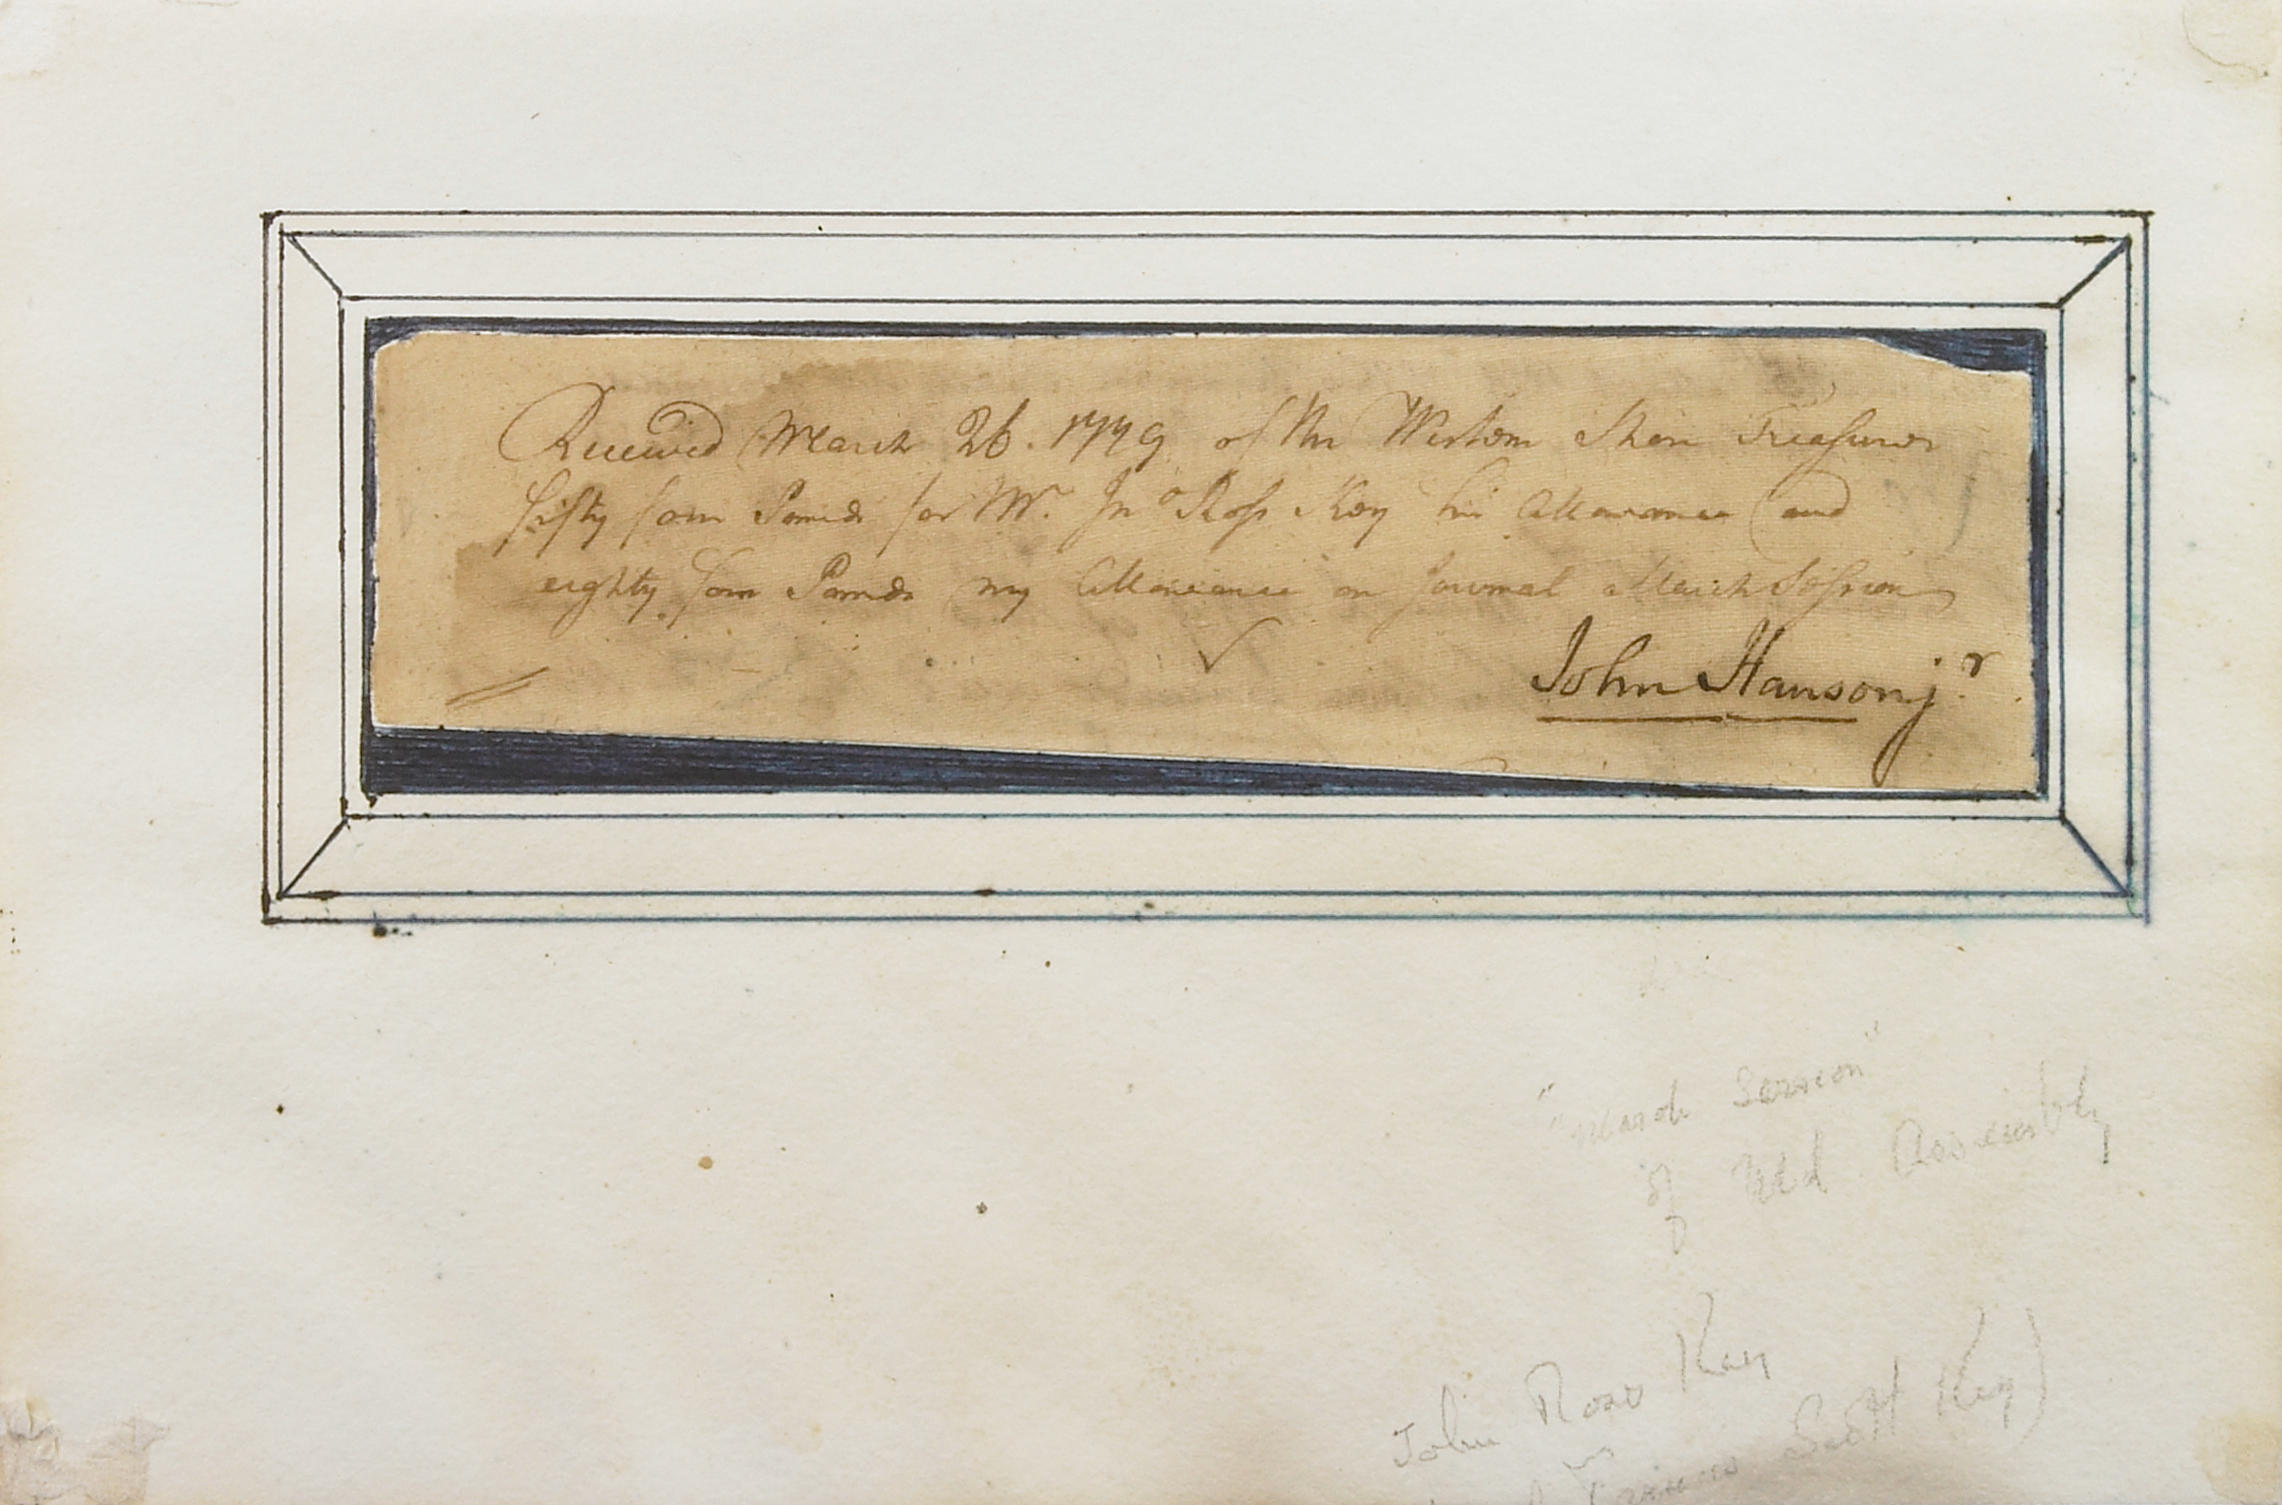 Received March 26. 1779 of the Western Shore Treasurer
fifty four Pounds for Mr. Jno Ross Key his Allowance and
eighty four Pounds my Allowance on Journal March Session
John Hanson jr
"March Session"
of Md Assembly
John Ross Key
Francis Scott Key)